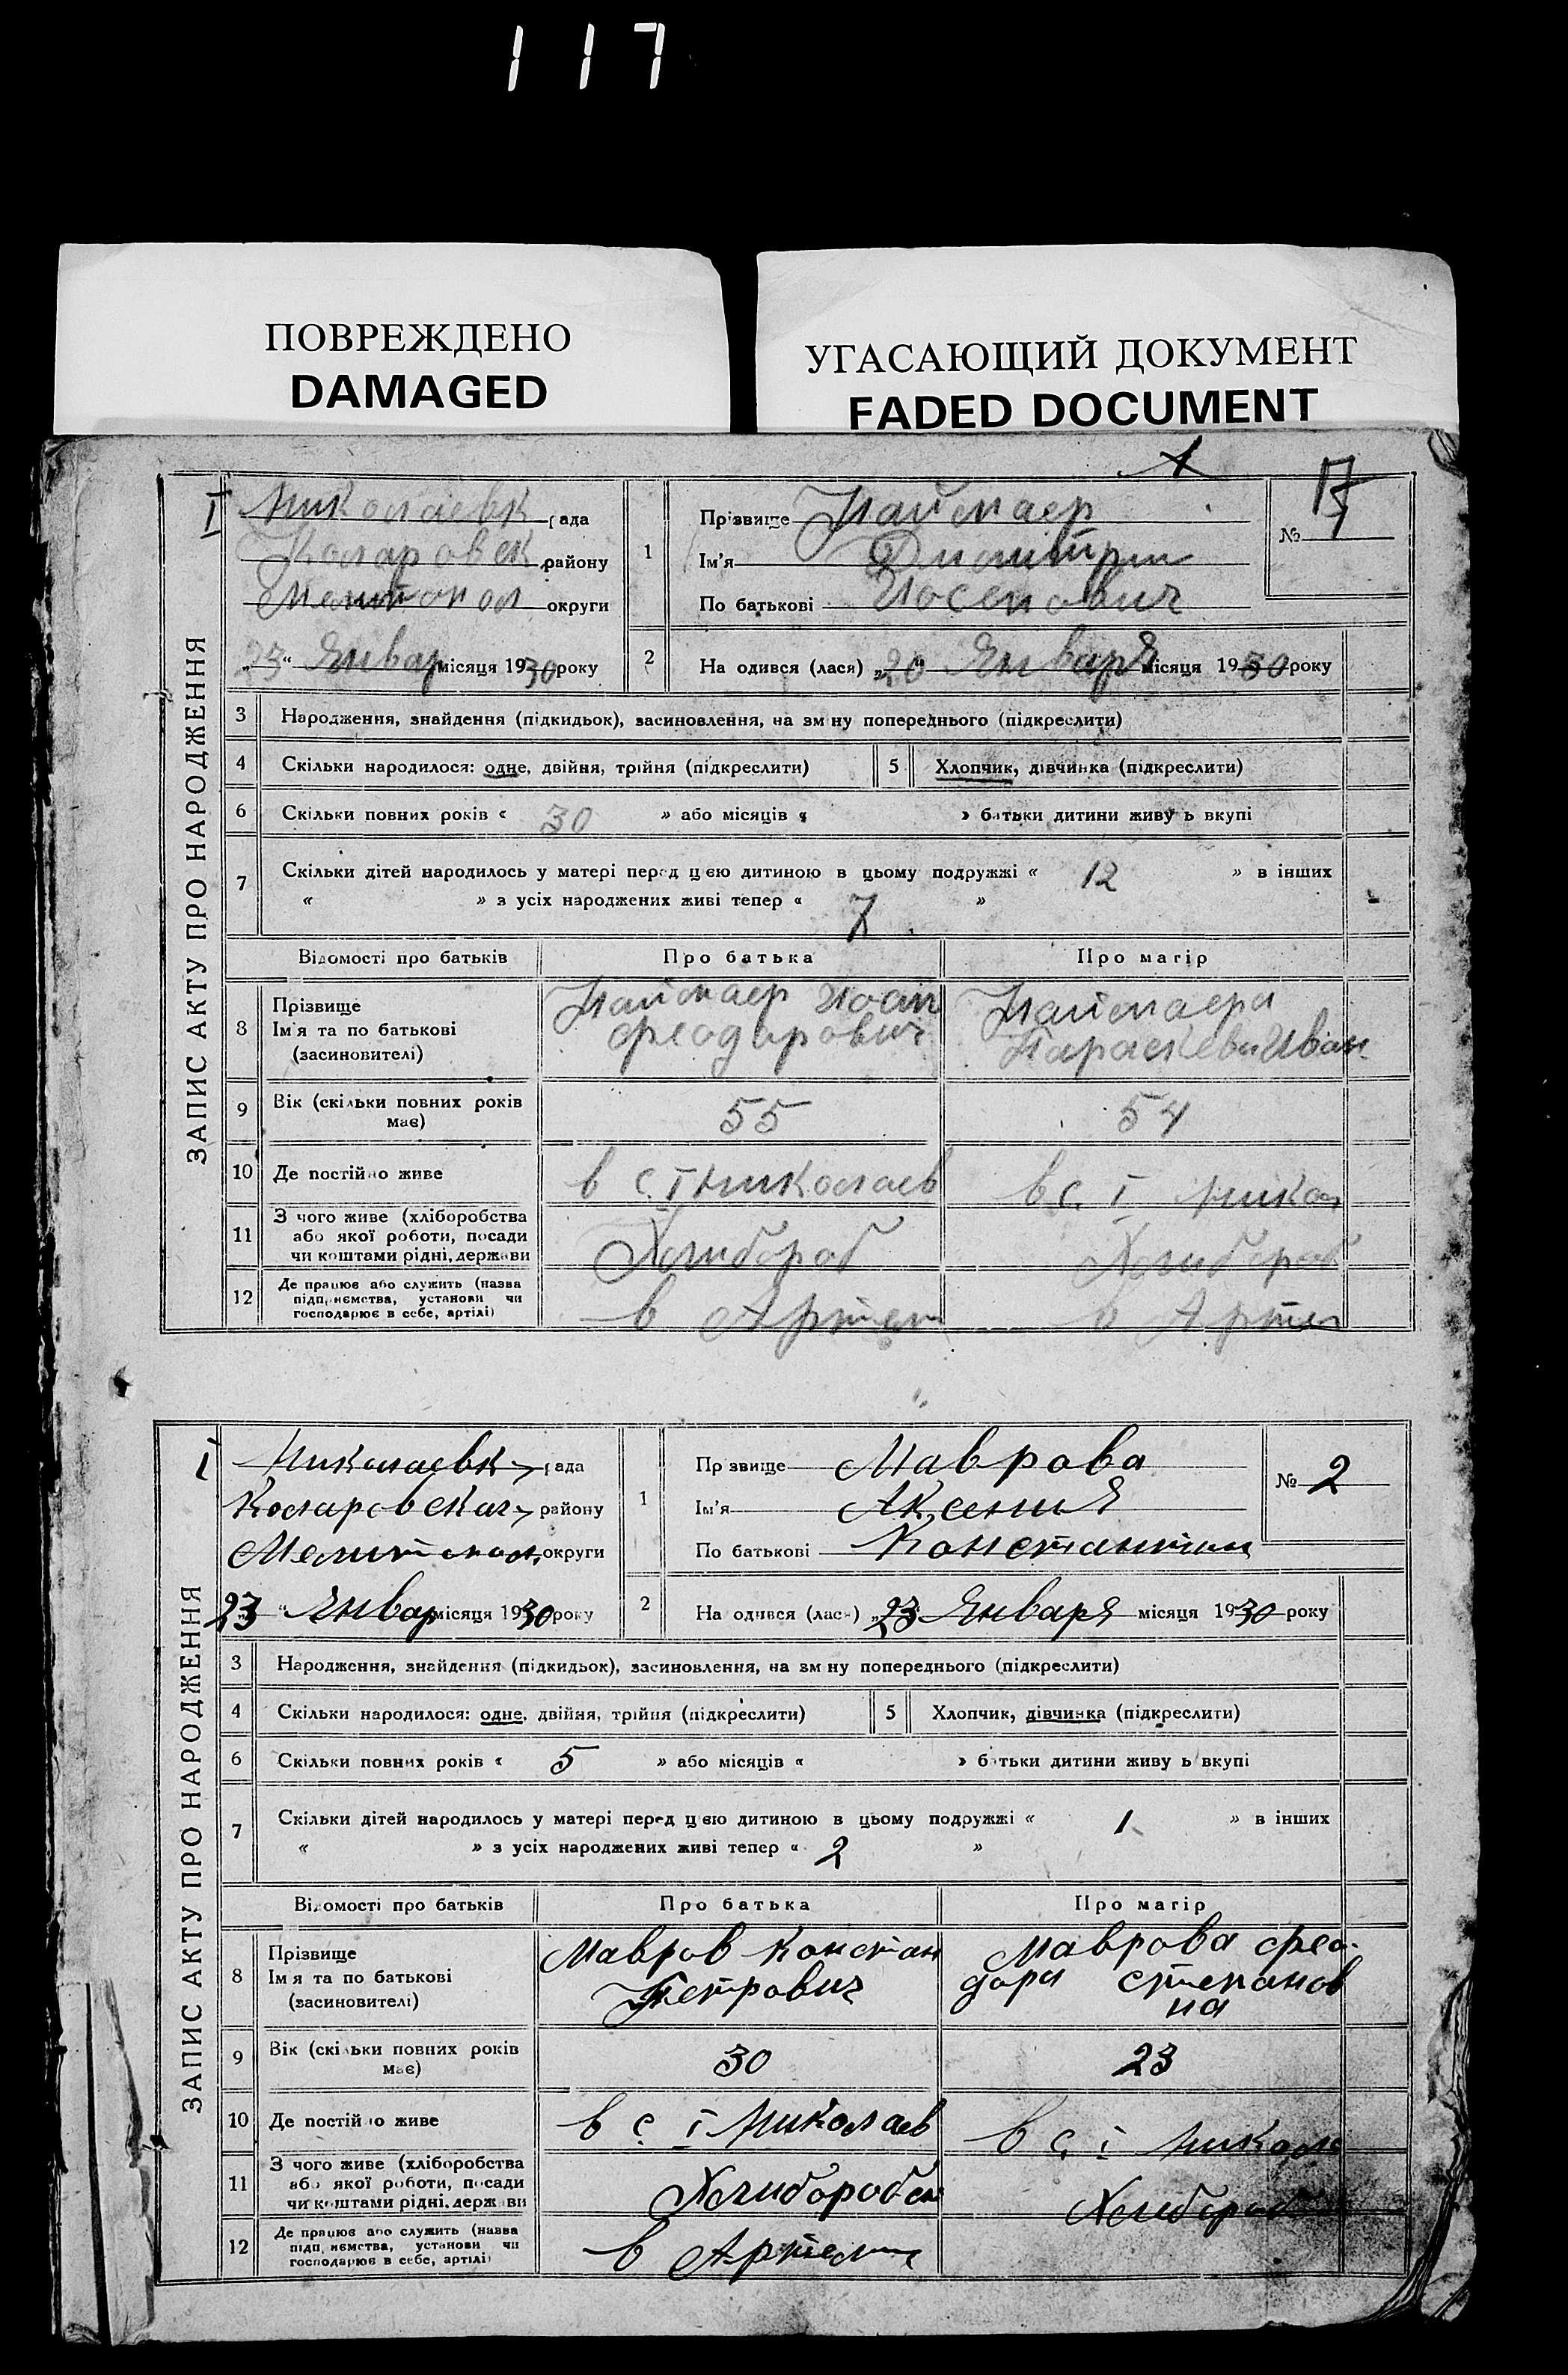 117
ПОВРЕЖДЕНО
DAMAGED
УГАСАЮЩИЙ ДОКУМЕНТ
FADED DOCUMENT
ЗАПИС АКТУ ПРО НАРОДЖЕННЯ
I Николаевк рада
Коларовск району
Мелитопол округи
„23“ Январ місяця 1930 року
1 Прізвище Паймаер
Ім'я Дмитри
По батькові Иосепович
№
2 На одився (лася) „20“ Января місяця 1930 року
3 Народження, знайдення (підкидьок), засиновлення, на зміну попереднього (підкреслити)
4 Скільки народилося: одне, двійня, трійня (підкреслити) 5 Хлопчик, дівчинка (підкреслити)
6 Скільки повних років « 30 » або місяців « » батьки дитини живуть вкупі
7 Скільки дітей народилось у матері перед цією дитиною в цьому подружжі « 12 » в інших
« » з усіх народжених живі тепер « 7 »
Відомості про батьків Про батька Про матір
8 Прізвище
Ім'я та по батькові
(засиновителі)
Паймаер Иосип
Феодорович
Паймаера
Параскева Иван
9 Вік (скільки повних років
має)
55 54
10 Де постійно живе в с. I Николаев в с. I Никол
11 З чого живе (хліборобства
або якої роботи, посади
чи коштами рідні, держави
Хлибороб Хлибороб
12 Де працює або служить (назва
підприємства, установи чи
господарює в себе, артілі)
в Артел в Артел
ЗАПИС АКТУ ПРО НАРОДЖЕННЯ
I Николаевк рада
Коларовска району
Мелитопол. округи
23 “ Январ місяця 1930 року
1 Прізвище Маврова
Ім'я Аксения
По батькові Константин
№ 2
2 На одився (лася) „23“ Января місяця 1930 року
3 Народження, знайдення (підкидьок), засиновлення, на зміну попереднього (підкреслити)
4 Скільки народилося: одне, двійня, трійня (підкреслити) 5 Хлопчик, дівчинка (підкреслити)
6 Скільки повних років « 5 » або місяців « » батьки дитини живуть вкупі
7 Скільки дітей народилось у матері перед цією дитиною в цьому подружжі « 1 » в інших
« » з усіх народжених живі тепер « 2 »
Відомості про батьків Про батька Про матір
8 Прізвище
Ім'я та по батькові
(засиновителі)
Мавров Констан
Петрович
Маврова Фео-
дора Степанов
на
9 Вік (скільки повних років
має)
30 23
10 Де постійно живе в с. I Николаев в с. I Никола
11 З чого живе (хліборобства
або якої роботи, посади
чи коштами рідні, держави
Хлибороб Хлибороб
12 Де працює або служить (назва
підприємства, установи чи
господарює в себе, артілі)
в Артели